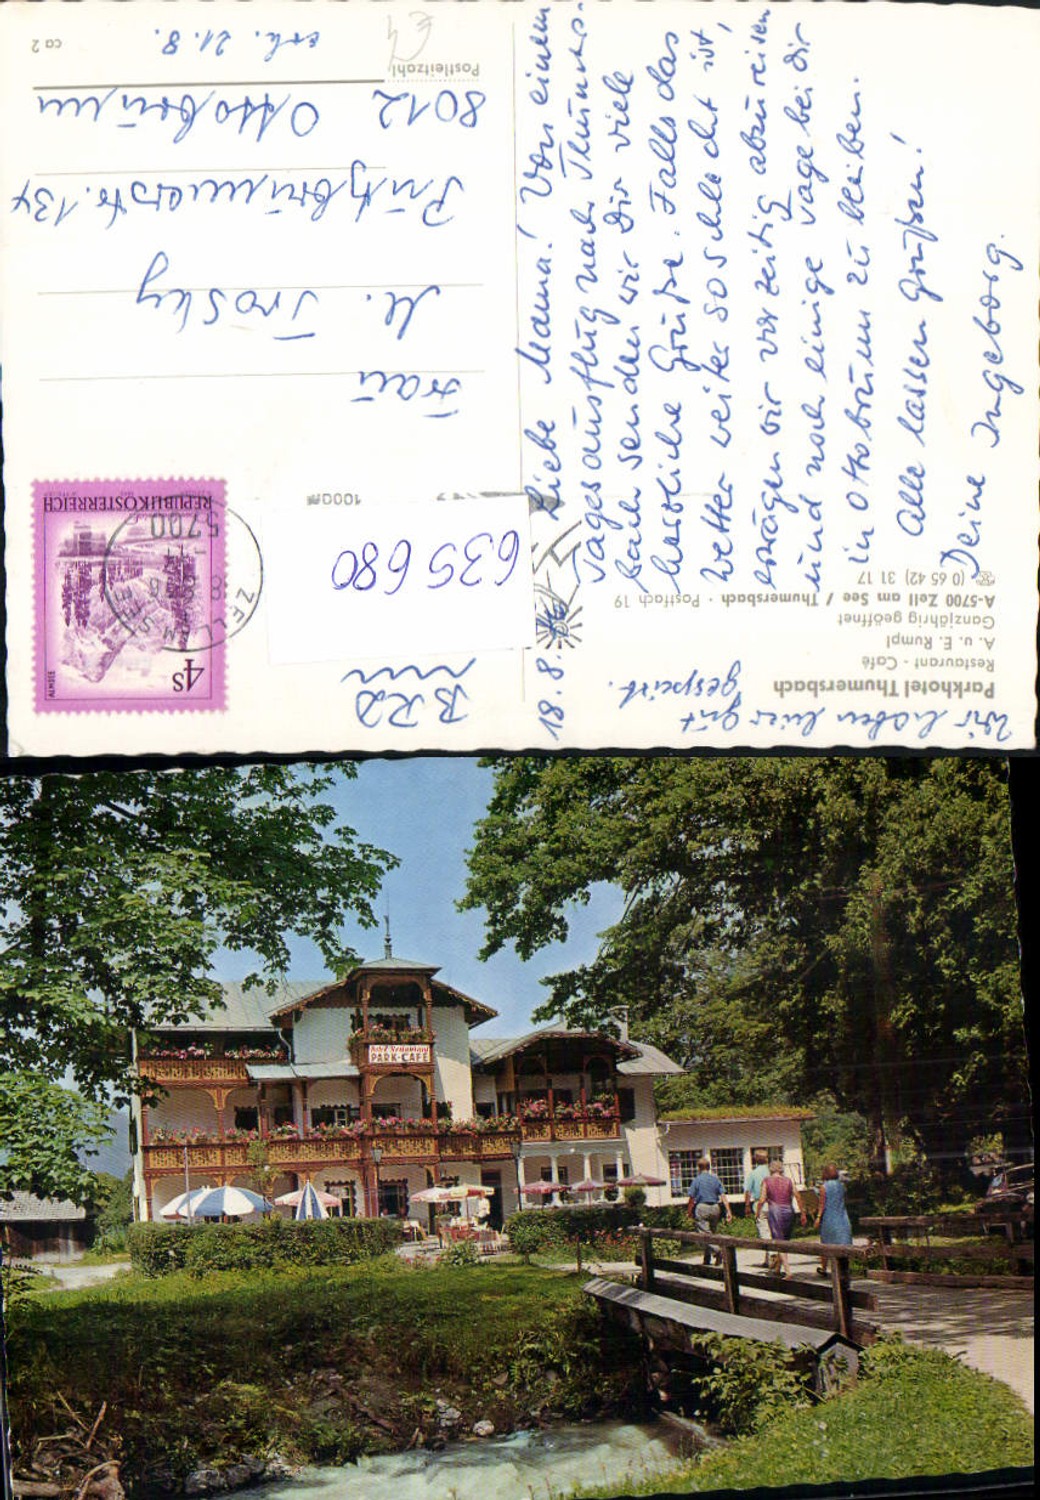 Parkhotel Thumersbach
Restaurant - Café
A. u. E. Rumpl
Ganzjährig geöffnet
A-5700 Zell am See / Thumersbach · Postfach 19
☎ (0 65 42) 31 17
Wir haben hier gut
gespeist.
18.8.76
Liebe Mama! Von einem
Tagesausflug nach Thumers-
bach senden wir Dir viele
herzliche Grüße. Falls das
Wetter weiter so schlecht ist,
erwägen wir vorzeitig abzureisen
und noch einige Tage bei Dir
in Ottobrunn zu bleiben.
Alle lassen Grüßen!
Deine Ingeborg.
BRD
635 680
100am
4S
ALMSEE
REPUBLIK ÖSTERREICH
5700
ZELL AM SEE
Frau
M. Trosky
Putzbrunnerstr. 134
8012 Ottobrunn
Postleitzahl
erh. 21.8.
ca 2
€4
Hotel Restaurant
PARK-CAFÉ